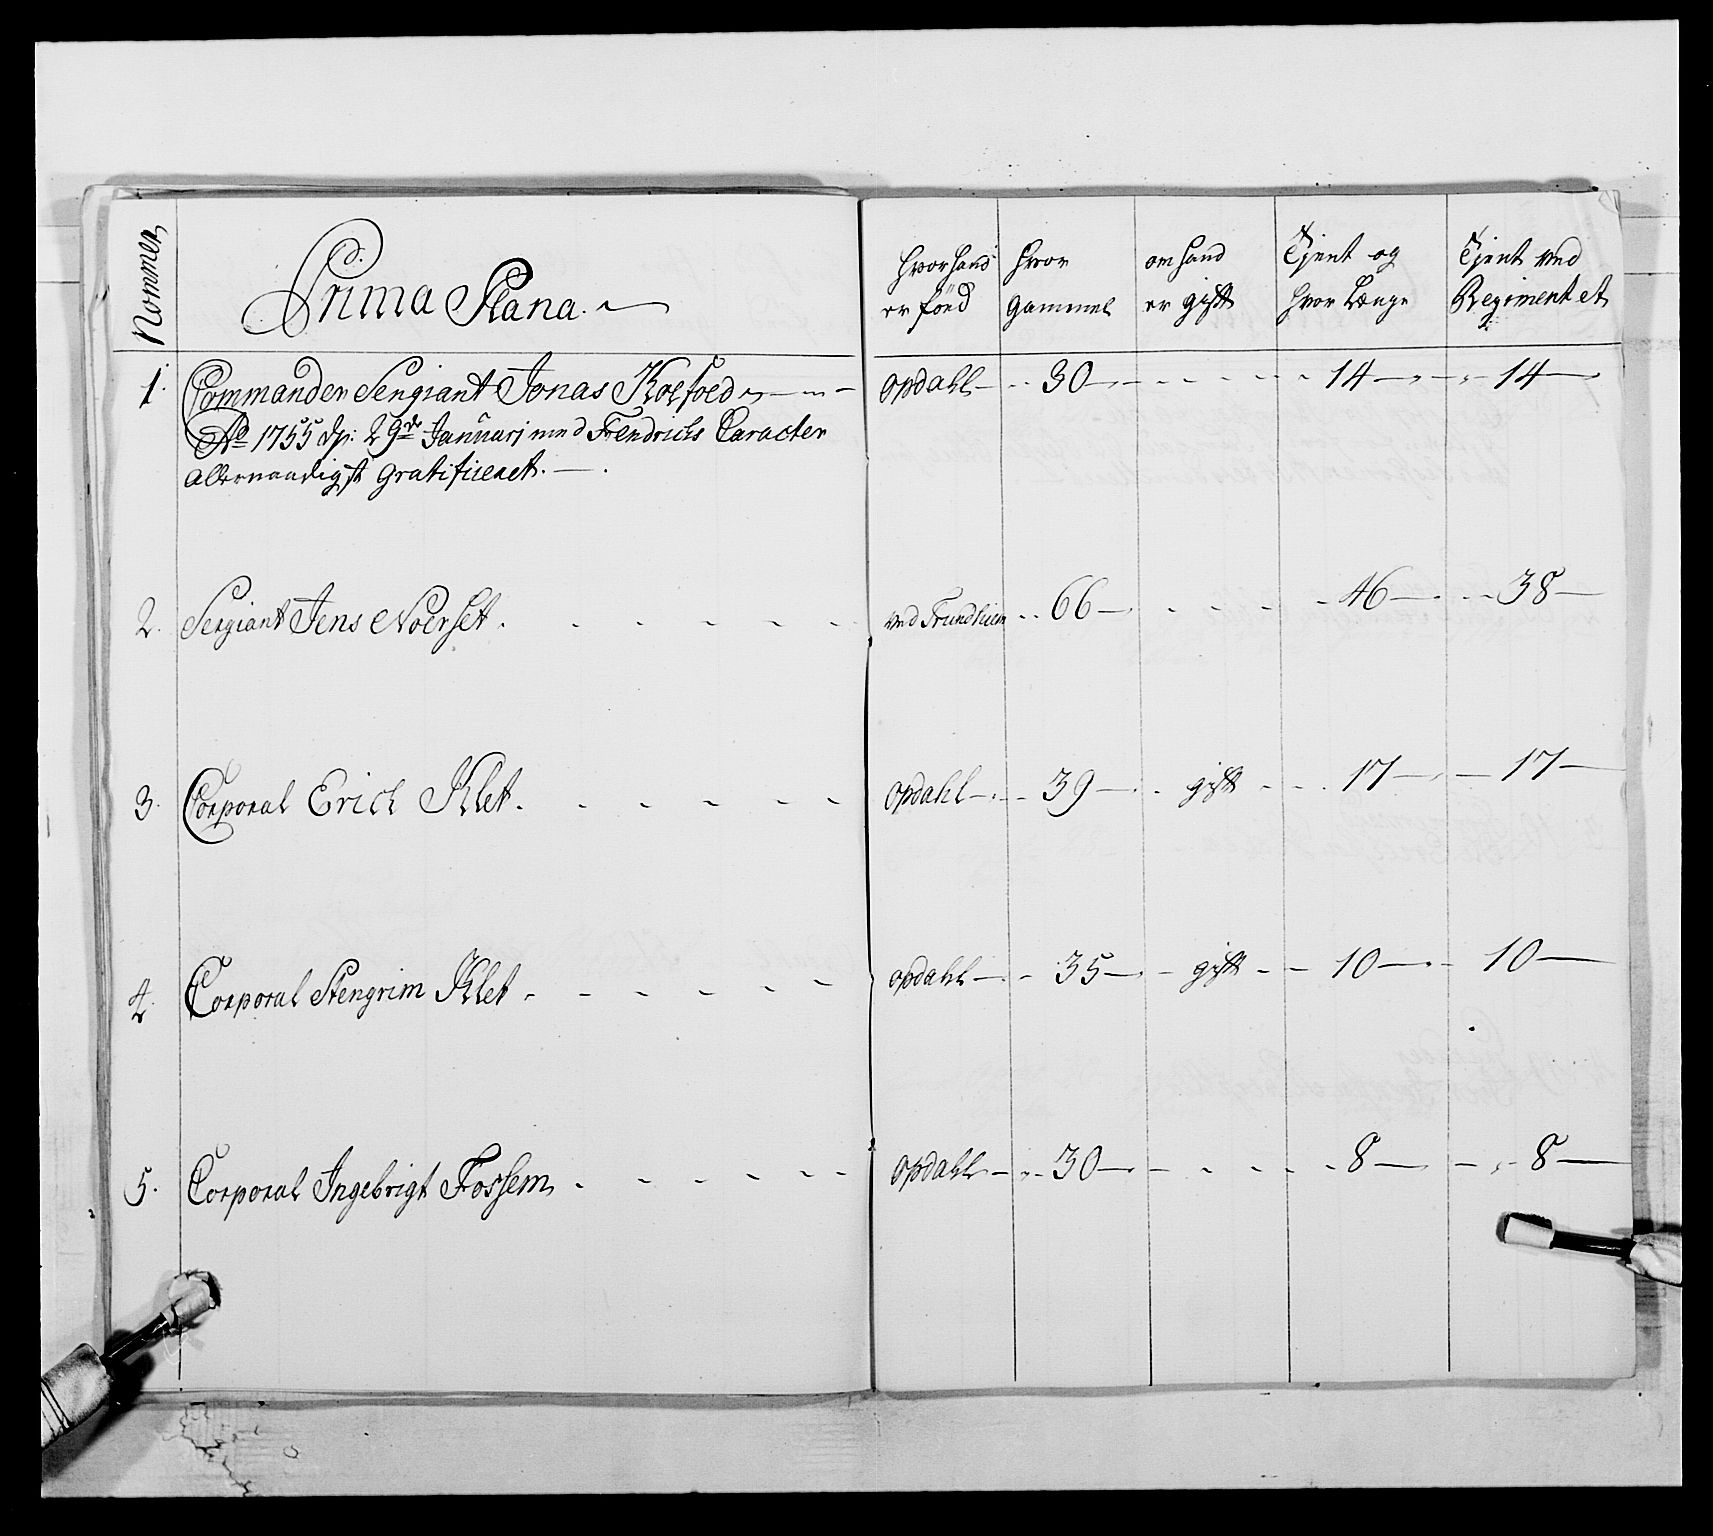 Nommer
Prima Plana.
hvor hand er föed
hvor gammel
om hand er gift
Tjent og hvor Længe
Tjent ved Regimentet
1. Commander Sergiant Jonas Koefoed opdahl 30 14 14
Ao 1755 d: 29de Januarj med Frendrichs Caracter
allernaadigst gratificeret.
2. Sergiant Jens Noerset. ved Trundhiem 66 46 38
3. Corporal Erich Klet. opdahl 39 gift 17 17
4. Corporal Stengrim Klet opdahl 35 gift 10 10
5. Corporal Ingebrigt Fossem opdahl 30 8 8